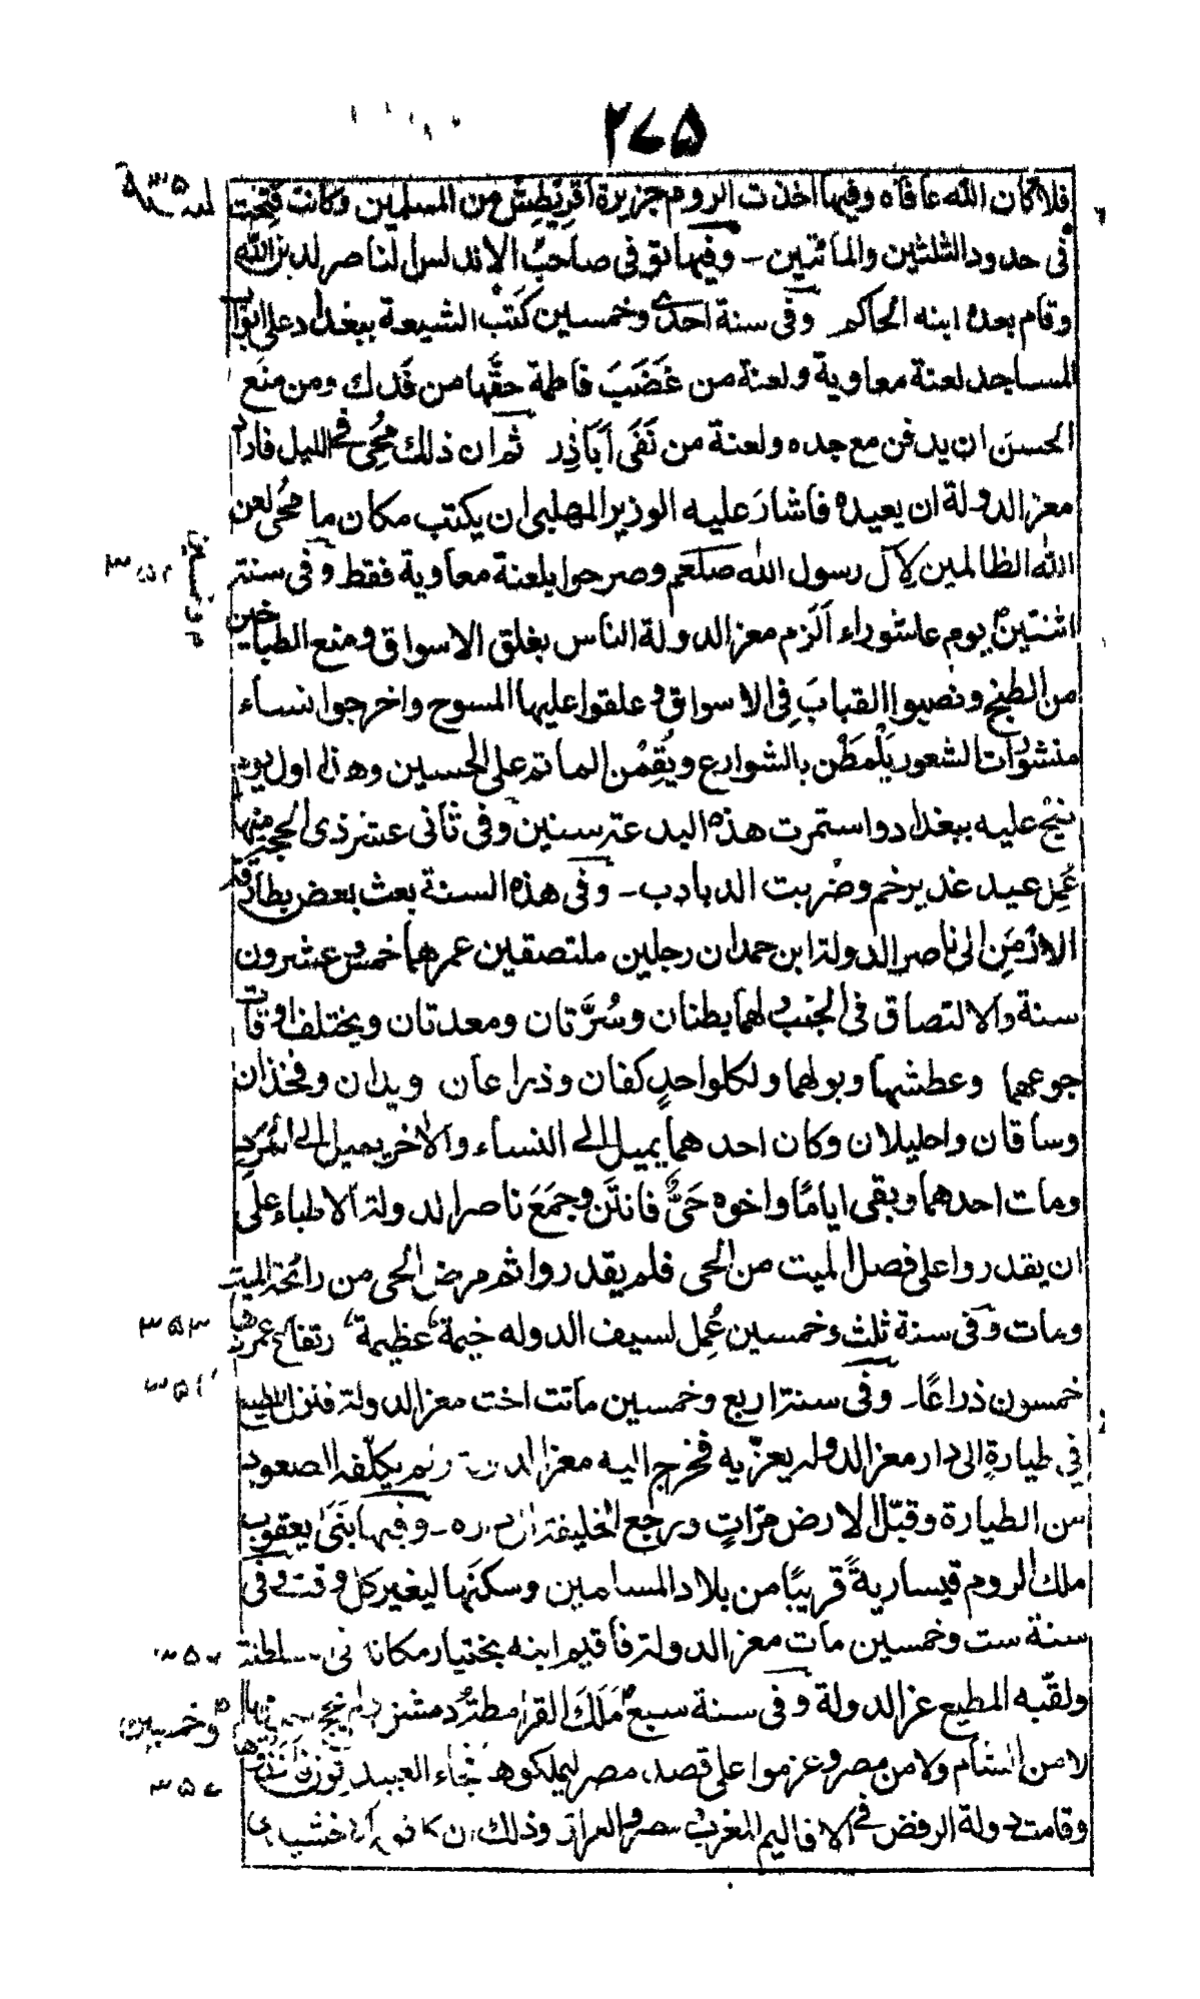 ۲۷۵
فلا كان الله عافاه وفيها اخذت الروم جزيرة اقريطش من المسلمين وكانت فتحت
فى حدود الثلثين والمائتين - وفيها توفى صاحب الاندلس الناصر لدين الله
وقام بعده ابنه الحاكم وفى سنة احدى وخمسين كتب الشيعة ببغداد على ابواب
المساجد لعنة معاوية ولعنة من غَضَبَ فاطمة حقَّها من فَدك ومن منَع
الحسنَ ان يدفن مع جده ولعنة من نَفَى اَبَاذَر ثم ان ذلك مُحِىَ فى الليل فاراد
معز الدولة ان يعيده فاشارَ عليه الوزير المهلبى ان يكتب مكان ما مُحى لعن
الله الظالمين لآل رسول الله صلعم وصرحوا بلعنة معاوية فقط وفى سنة
اثنتين يوم عاشوراء اَلزم معز الدولة الناس بغلق الاسواق ومنع الطباخين
من الطبخ ونصبوا القبابَ فِى الاسواق وعلقوا عليها المسوح واخرجوا نساء
منشورات الشعور يَلْطمن بالشوارع ويُقِمْن الماتم على الحسين وهذا اول يوم
نيح عليه ببغداد واستمرت هذه البدعة سنين وفى ثانى عشر ذى الحجة منها
عُمِل عيد غدير خم وضُربت الدبادب - وفى هذه السنة بعث بعض بطارقة
الارمَنِ الى ناصر الدولة ابن حمدان رجلين ملتصقين عمرهما خمس وعشرون
سنة والالتصاق فى الجنب ولهما بطنان وسُرَّتان ومعدتان ويختلف اوقات
جوعهما وعطشهما وبولهما ولكل واحدٍ كفان وذراعان ويدان وفخذان
وساقان واحليلان وكان احدهما يميل الى النساء والآخر يميل الى المُرد
ومات احدهما وبقى اياماً واخوه حَىٌّ فانتَن وجمَعَ ناصر الدولة الاطباء على
ان يقدروا على فصل الميت من الحى فلم يقدروا ثم مرض الحى من رائحة الميت
ومات وفى سنة ثلث وخمسين عُمِل لسيف الدوله خيمة عظيمة ارتفاع عمودها
خمسون ذراعًا - وفى سنة اربع وخمسين ماتت اخت معز الدولة فنزل المطيع
فِي طيارةٍ الى دار معز الدوله يعزّيه فخرج اليه معز الدولة ولم يكلّفه الصعود
من الطيارة وقبّل الارض مرّاتٍ ورجع الخليفة الى داره - وفيها بنَى يعقوب
ملك الروم قيساريةً قريبًا من بلاد المسلمين وسكنَها ليغير كل وقت وفى
سنة ست وخمسين مات معز الدولة فاقيم ابنه بختيار مكانه فى سلطنة
ولقّبه المطيع عز الدولة وفى سنة سبع مَلَكَ القرامطة دمشق ولم يحج فيها
لا من الشام ولا من مصر وعزموا على قصد مصر ليملكوها فجاء العبيديون فاَخذوها
وقامت دولة الرفض فى الاقاليم المغرب ومصر والعراق وذلك ان كافورا الاخشيدى
سنة ۳۵۰
۳۵۲
وخمسين
۳۵۳
۳۵۴
۳۵۶
وخمسين
۳۵۷